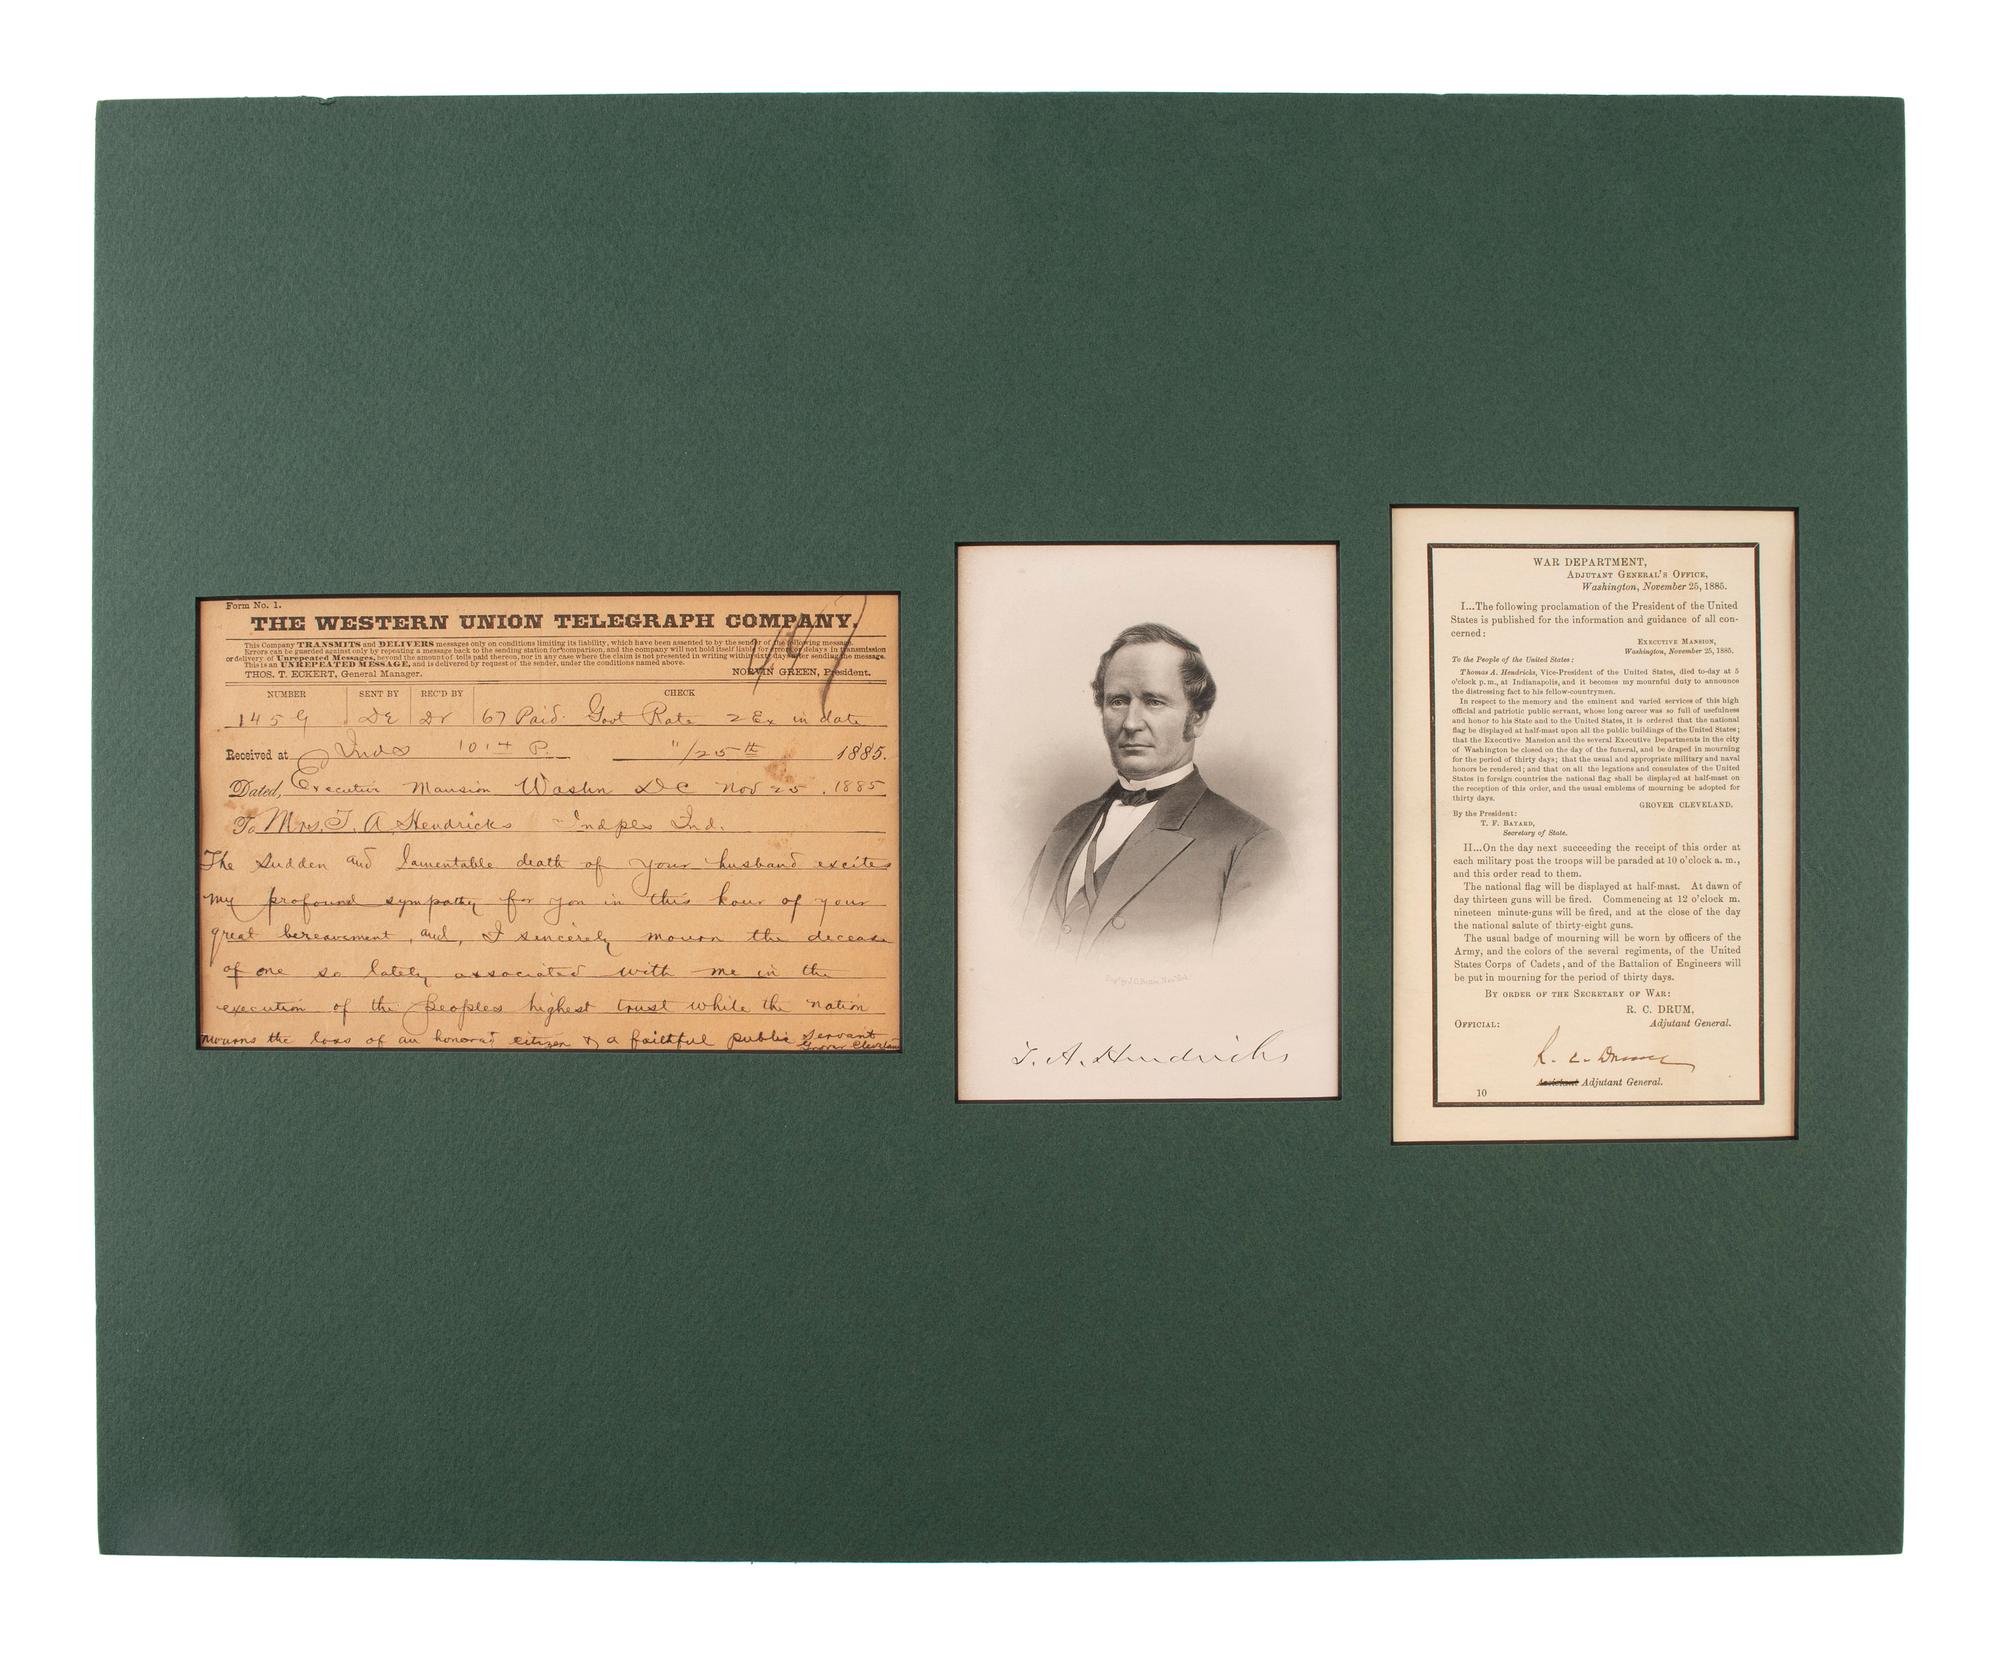 Form No. 1.
THE WESTERN UNION TELEGRAPH COMPANY.
This Company TRANSMITS and DELIVERS messages only on conditions limiting its liability, which have been assented to by the sender of the following message.
Errors can be guarded against only by repeating a message back to the sending station for comparison, and the company will not hold itself liable for errors or delays in transmission
or delivery of Unrepeated Messages, beyond the amount of tolls paid thereon, nor in any case where the claim is not presented in writing within sixty days after sending the message.
This is an UNREPEATED MESSAGE, and is delivered by request of the sender, under the conditions named above.
THOS. T. ECKERT, General Manager. NORVIN GREEN, President.
NUMBER SENT BY REC'D BY CHECK
145 G De Dr 67 Paid. Govt Rate 2 Ex in date
Received at Inds 1014 P. 11/25th 1885.
Dated, Executive Mansion Washn DC Nov 25. 1885
To Mrs. T. A Hendricks Indpls Ind.
The sudden and lamentable death of your husband excites
my profound sympathy for you in this hour of your
great bereavement, and, I sincerely mourn the decease
of one so lately associated with me in the
execution of the peoples highest trust while the nation
mourns the loss of an honored citizen & a faithful public servant
Grover Cleveland
T. A. Hendricks
WAR DEPARTMENT,
ADJUTANT GENERAL'S OFFICE,
Washington, November 25, 1885.
I...The following proclamation of the President of the United
States is published for the information and guidance of all con-
cerned:
EXECUTIVE MANSION,
Washington, November 25, 1885.
To the People of the United States:
Thomas A. Hendricks, Vice-President of the United States, died to-day at 5
o'clock p. m., at Indianapolis, and it becomes my mournful duty to announce
the distressing fact to his fellow-countrymen.
In respect to the memory and the eminent and varied services of this high
official and patriotic public servant, whose long career was so full of usefulness
and honor to his State and to the United States, it is ordered that the national
flag be displayed at half-mast upon all the public buildings of the United States;
that the Executive Mansion and the several Executive Departments in the city
of Washington be closed on the day of the funeral, and be draped in mourning
for the period of thirty days; that the usual and appropriate military and naval
honors be rendered; and that on all the legations and consulates of the United
States in foreign countries the national flag shall be displayed at half-mast on
the reception of this order, and the usual emblems of mourning be adopted for
thirty days.
GROVER CLEVELAND.
By the President:
T. F. BAYARD,
Secretary of State.
II...On the day next succeeding the receipt of this order at
each military post the troops will be paraded at 10 o'clock a. m.,
and this order read to them.
The national flag will be displayed at half-mast. At dawn of
day thirteen guns will be fired. Commencing at 12 o'clock m.
nineteen minute-guns will be fired, and at the close of the day
the national salute of thirty-eight guns.
The usual badge of mourning will be worn by officers of the
Army, and the colors of the several regiments, of the United
States Corps of Cadets, and of the Battalion of Engineers will
be put in mourning for the period of thirty days.
BY ORDER OF THE SECRETARY OF WAR:
R. C. DRUM,
OFFICIAL: Adjutant General.
R. C. Drum
Assistant Adjutant General.
10